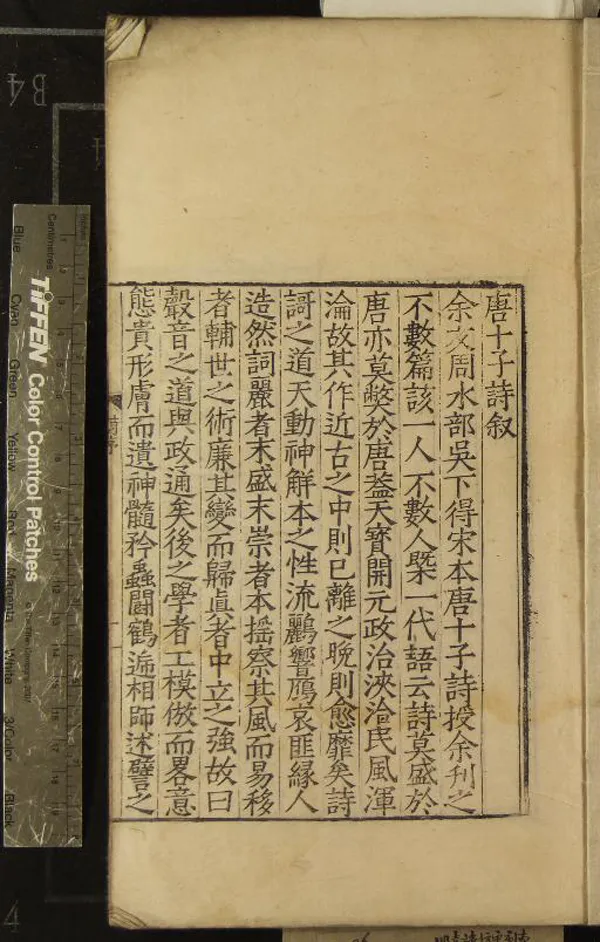 唐十子詩叙
余友周水部吳下得宋本唐十子詩授余刋之
不數篇該一人不數人槩一代語云詩莫盛於
唐亦莫獘於唐葢天寳開元政治浹洽民風渾
淪故其作近古之中則已離之晚則愈靡矣詩
謌之道天動神解本之性流鸝響鴈哀匪縁人
造然詞麗者末盛末崇者本揺察其風而易移
者輔世之術廉其變而歸眞者中立之強故曰
聲音之道與政通矣後之學者工模倣而畧意
態貴形膚而遺神髓矜蟲鬭鶴遞相師述譬之
前序
TIFFEN Color Control Patches
Centimetres
Inches
Blue
Cyan
Green
Yellow
Red
Magenta
White
3/Color
Black
B4
4